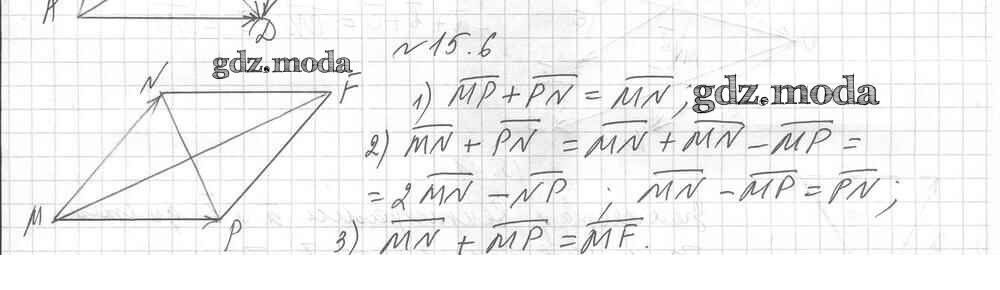 A
D
№15.6
gdz.moda
N
F
M
P
1) MP + PN = MN;
gdz.moda
2) MN + PN = MN + MN - MP =
= 2 MN - NP ; MN - MP = PN;
3) MN + MP = MF.